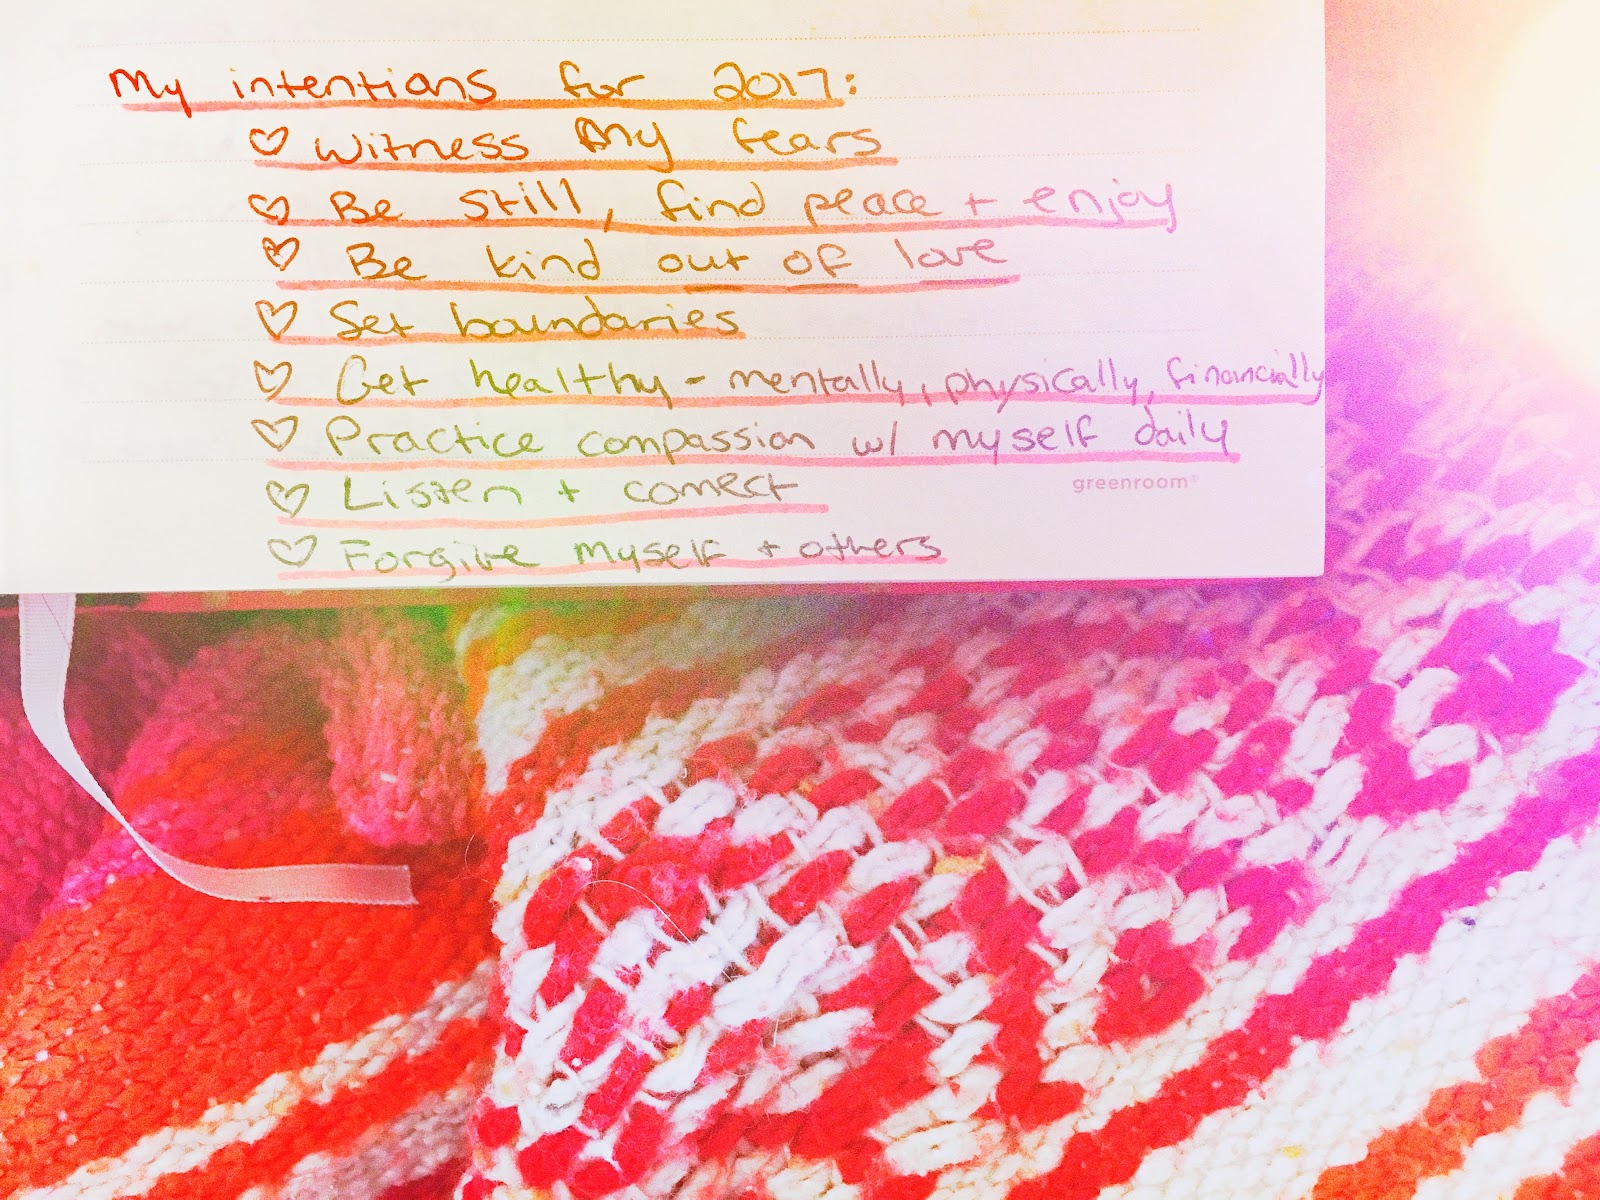 My intentions for 2017:
♡ Witness My fears
♡ Be still, find peace + enjoy
♡ Be kind out of love
♡ Set boundaries
♡ Get healthy - mentally, physically, financially
♡ Practice compassion w/ myself daily
greenroom®
♡ Listen + connect
♡ Forgive myself + others